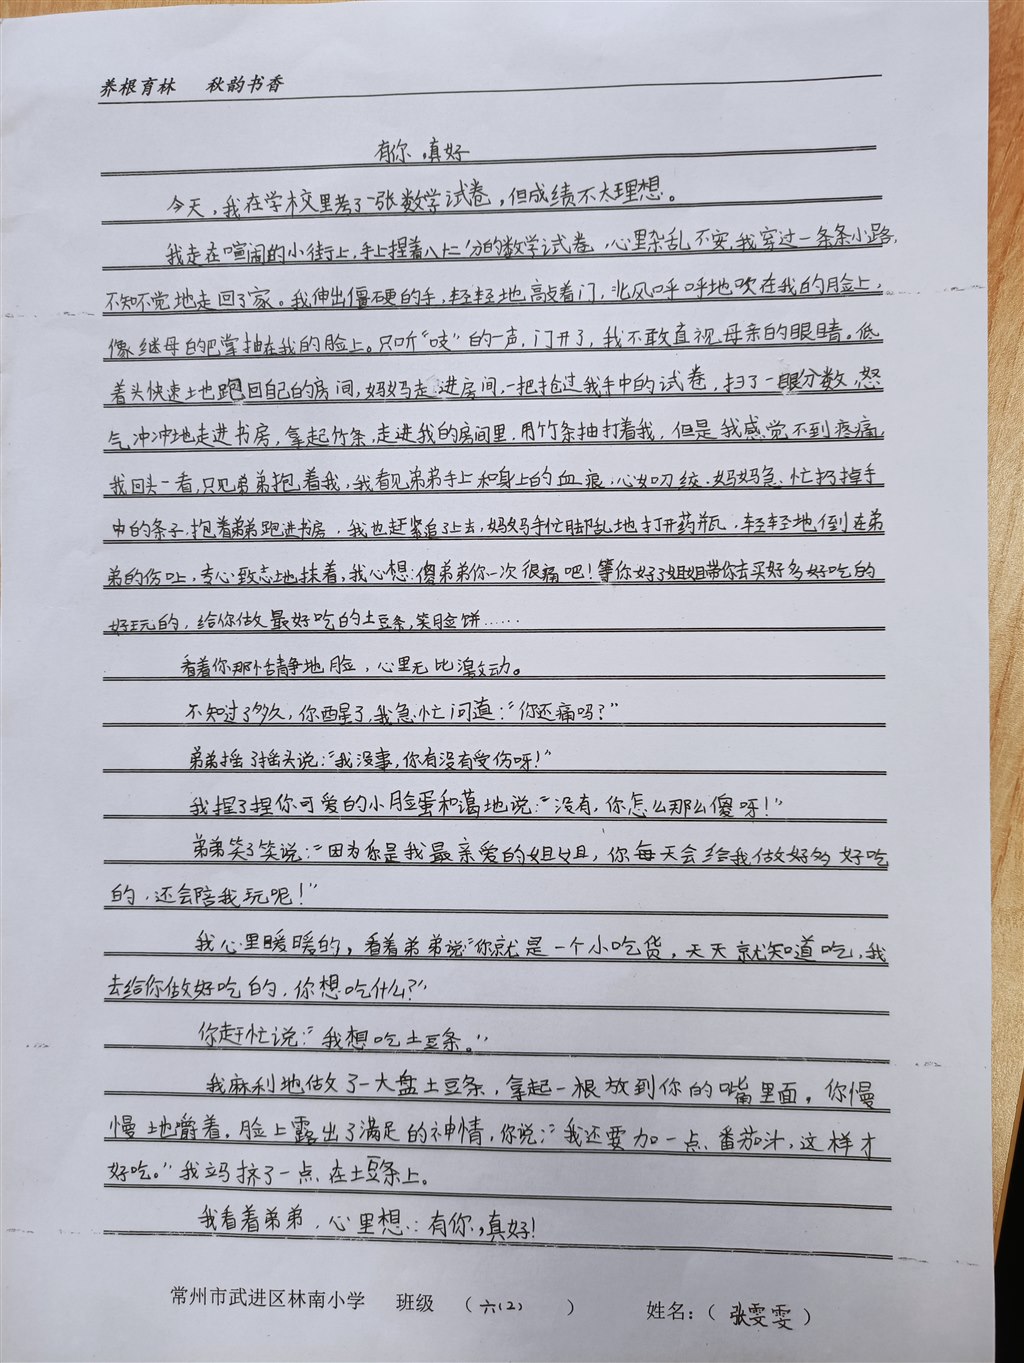 养根育林 秋韵书香
有你,真好
今天,我在学校里考了一张数学试卷,但成绩不太理想。
我走在喧闹的小街上,手上捏着八十二分的数学试卷,心里杂乱不安,我穿过一条条小路,
不知不觉地走回了家。我伸出僵硬的手,轻轻地敲着门,北风呼呼地吹在我的脸上,
像继母的巴掌抽在我的脸上。只听“吱”的一声,门开了,我不敢直视母亲的眼睛。低
着头快速地跑回自己的房间,妈妈走进房间,一把抢过我手中的试卷,扫了一眼分数,怒
气冲冲地走进书房,拿起竹条,走进我的房间里,用竹条抽打着我,但是我感觉不到疼痛,
我回头一看,只见弟弟抱着我,我看见弟弟手上和身上的血痕,心如刀绞.妈妈急忙扔掉手
中的条子,抱着弟弟跑进书房,我也赶紧追了上去,妈妈手忙脚乱地打开药瓶,轻轻地倒在弟
弟的伤口上,专心致志地抹着,我心想:傻弟弟你一次很痛吧!等你好了姐姐带你去买好多好吃的
好玩的,给你做最好吃的土豆条,笑脸饼……
看着你那恬静地脸,心里无比激动。
不知过了多久,你醒了,我急忙问道:“你还痛吗?”
弟弟摇了摇头说:“我没事,你有没有受伤呀!”
我捏了捏你可爱的小脸蛋和蔼地说:“没有,你怎么那么傻呀!”
弟弟笑了笑说:“因为你是我最亲爱的姐姐,你每天会给我做好多好吃
的,还会陪我玩呢!”
我心里暖暖的,看着弟弟说“你就是一个小吃货,天天就知道吃,我
去给你做好吃的,你想吃什么?”
你赶忙说:“我想吃土豆条。”
我麻利地做了一大盘土豆条,拿起一根放到你的嘴里面。你慢
慢地嚼着,脸上露出了满足的神情,你说:“我还要加一点番茄汁,这样才
好吃。”我立马挤了一点在土豆条上。
我看着弟弟,心里想:有你,真好!
常州市武进区林南小学 班级 (六(2) ) 姓名:(张雯雯)